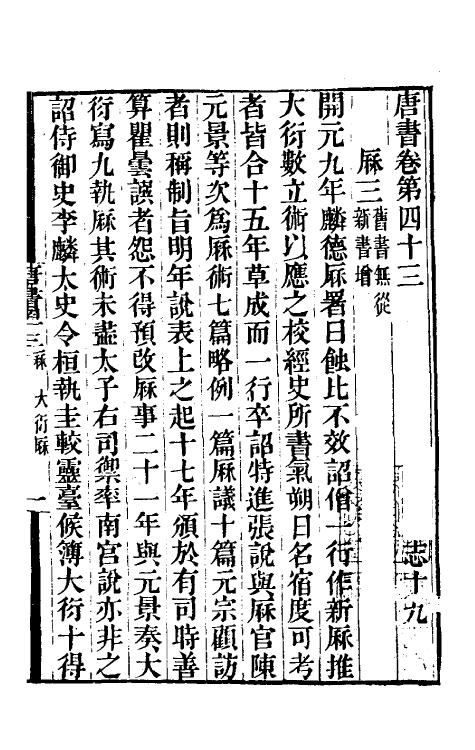 唐書卷第四十三
志十九
厤三
舊書無從
新書增
開元九年麟德厤署日蝕比不效詔僧一行作新厤推
大衍數立術以應之校經史所書氣朔日名宿度可考
者皆合十五年草成而一行卒詔特進張說與厤官陳
元景等次爲厤術七篇略例一篇厤議十篇元宗顧訪
者則稱制旨明年說表上之起十七年頒於有司時善
算瞿曇譔者怨不得預改厤事二十一年與元景奏大
衍寫九執厤其術未盡太子右司禦率南宮說亦非之
詔侍御史李麟太史令桓執圭較靈臺候簿大衍十得
厤 大衍厤
一